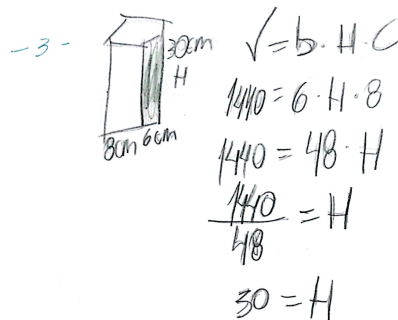 - 3 -
30cm
H
8cm 6cm
V = b . H . C
1440 = 6 . H . 8
1440 = 48 . H
1440
48
= H
30 = H